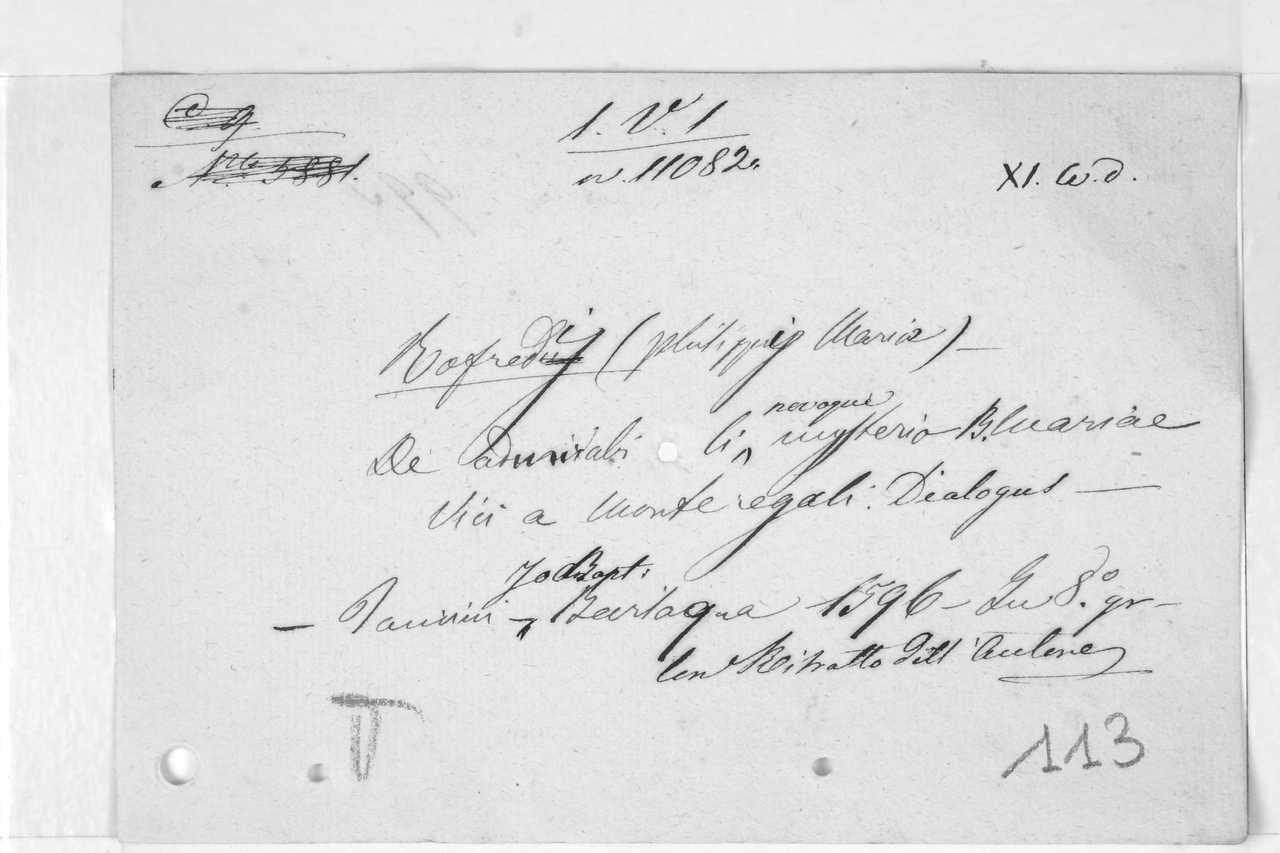 C. 9.
N.ro 5881.
1. V. 1
n. 11082.
XI. W. d.
Rofredij (Philippi Maria) —
De admirabili novoque mysterio B. Mariae
Vici a Monte regali. Dialogus —
— Taurini — Jo Bapt. Bevilaqua 1596 — In 8.º gr —
Con Ritratto dell'Autore
T
113